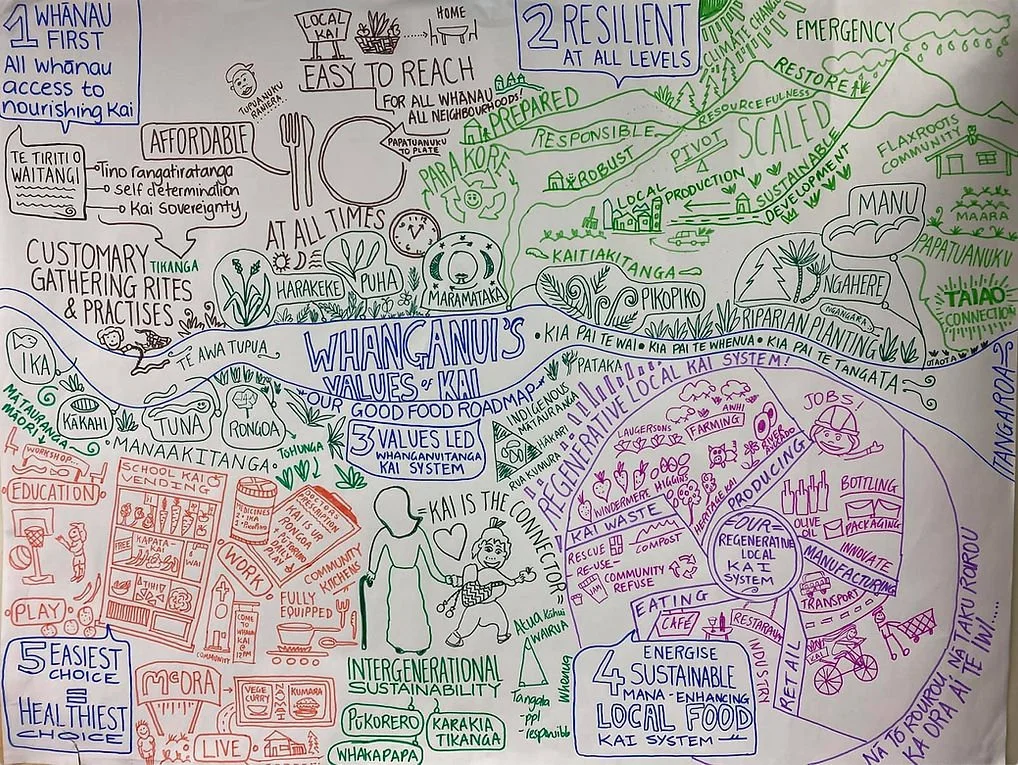 1 WHĀNAU
FIRST
All whānau
access to
nourishing Kai
LOCAL
KAI
HOME
EASY TO REACH
FOR ALL WHANAU
ALL NEIGHBOURHOODS!
TUPUANUKU
AFFORDABLE
PAPATUANUKU
TO PLATE
TE TIRITI O
WAITANGI
Tino rangatiratanga
self determination
Kai Sovereignty
AT ALL TIMES
CUSTOMARY
GATHERING RITES
& PRACTISES
TIKANGA
HARAKEKE
PUHA
MARAMATAKA
2 RESILIENT
AT ALL LEVELS
CLIMATE CHANGE
EMERGENCY
RESTORE
PREPARED
RESOURCEFULNESS
RESPONSIBLE
SCALED
PARAKORE
ROBUST
PIVOT
FLAXROOTS
COMMUNITY
LOCAL
PRODUCTION
SUSTAINABLE
DEVELOPMENT
MANU
MAARA
PAPATUANUKU
KAITIAKITANGA
PIKOPIKO
NGAHERE
NGANGARA
TAIAO
CONNECTION
RIPARIAN PLANTING
UTAOTA
IKA
TE AWA TUPUA
WHANGANUI'S
VALUES of KAI
OUR GOOD FOOD ROADMAP
• KIA PAI TE WAI • KIA PAI TE WHENUA • KIA PAI TE TANGATA
TANGAROA
MATAURANGA
MĀORI
KĀKAHI
TUNA
RONGOA
MANAAKITANGA
TOHUNGA
3 VALUES LED
WHANGANUITANGA
KAI SYSTEM
PATAKA
INDIGENOUS
MATAIRANGA
HĀKARI
RUA KUMURA
WORKSHOP
EDUCATION
PLAY
SCHOOL KAI
VENDING
FREE
KAPATA
KAI
WAI
MEDICINES
IKA
DOCTOR'S
PRESCRIPTION
KAI IS UR
RONGOA
WORK
COMMUNITY
KITCHENS
FULLY
EQUIPPED
COME
TO
WHANAU
KAI @
12PM
COMMUNITY
KAI IS THE CONNECTOR
Atua Kāhui
WAIRUA
Tangata
- ppl
Whenua
INTERGENERATIONAL
SUSTAINABILITY
PŪKORERO
KARAKIA
TIKANGA
WHAKAPAPA
5 EASIEST
CHOICE
=
HEALTHIEST
CHOICE
McORA
VEGE
CURRY
KUMARA
LIVE
REGENERATIVE LOCAL KAI SYSTEM!
LAUGERSONS
AWHI
FARMING
RIVER
AVOCADO
JOBS!
WINDERMERE
HIGGINS
HERITAGE KAI
PRODUCING
KAI WASTE
RESCUE
RE-USE
COMPOST
COMMUNITY
REFUSE
OUR
REGENERATIVE
LOCAL
KAI
SYSTEM
BOTTLING
OLIVE
OIL
PACKAGING
INNOVATE
MANUFACTURING
TRANSPORT
EATING
CAFÉ
RESTARAUNT
INDUSTRY
RETAIL
KAI
4 ENERGISE
SUSTAINABLE
MANA-ENHANCING
LOCAL FOOD
KAI SYSTEM
NA TO ROUROU, NA TAKU ROUROU
KA ORA AI TE IWI....